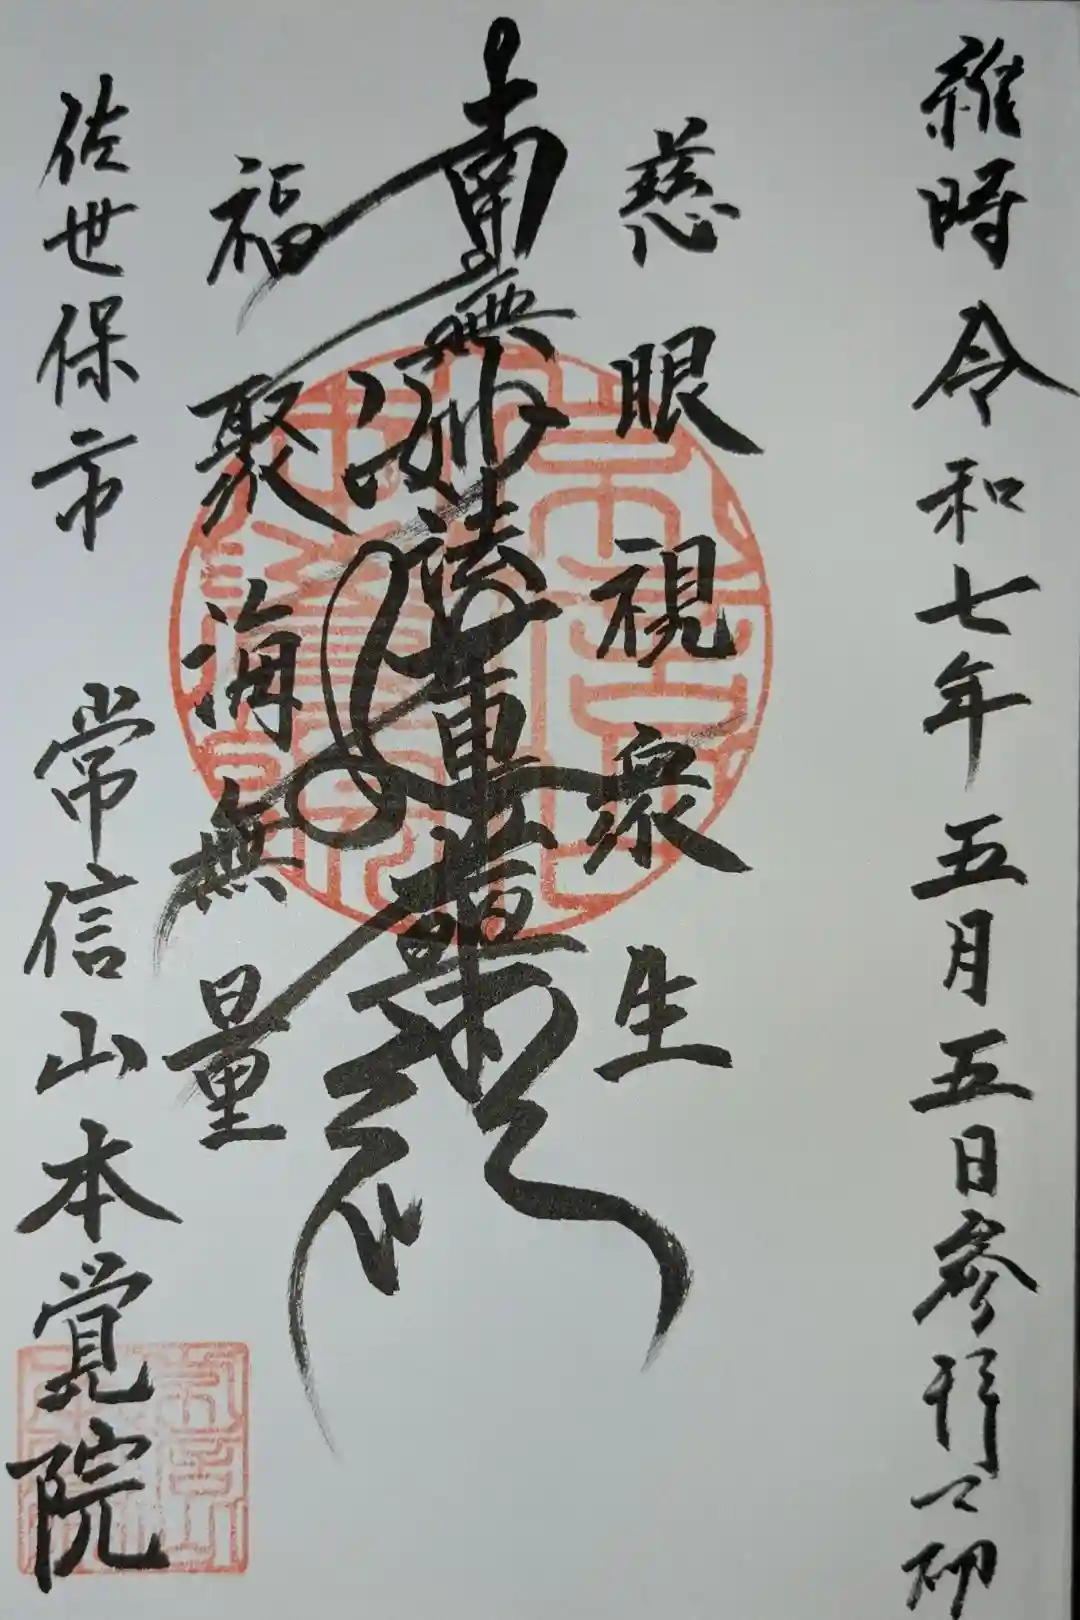 維時令和七年五月五日参拝之砌
慈眼視衆生
南無妙法蓮華経
福聚海無量
佐世保市 常信山本覚院